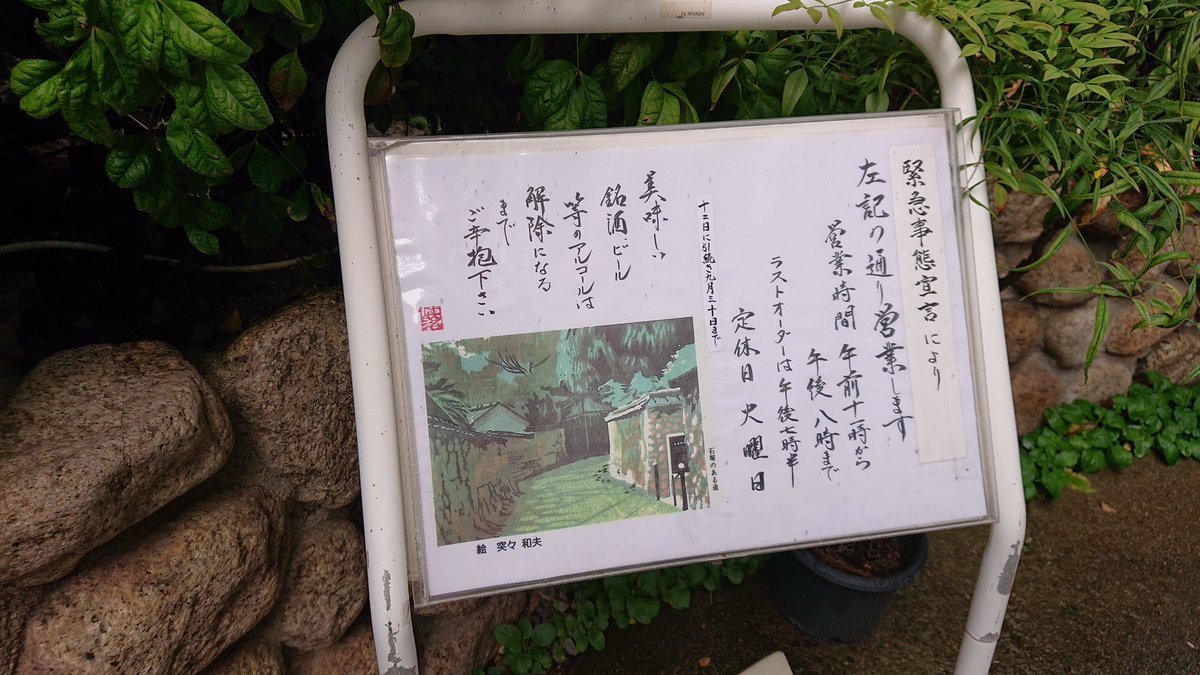 緊急事態宣言により
左記の通り営業します
営業時間 午前十一時から
午後八時まで
ラストオーダーは午後七時半
定休日 火曜日
十二日に引続き九月三十日まで
美味しい
銘酒、ビール
等のアルコールは
解除になる
まで
ご辛抱下さい
石塀のある道
絵 突々 和夫